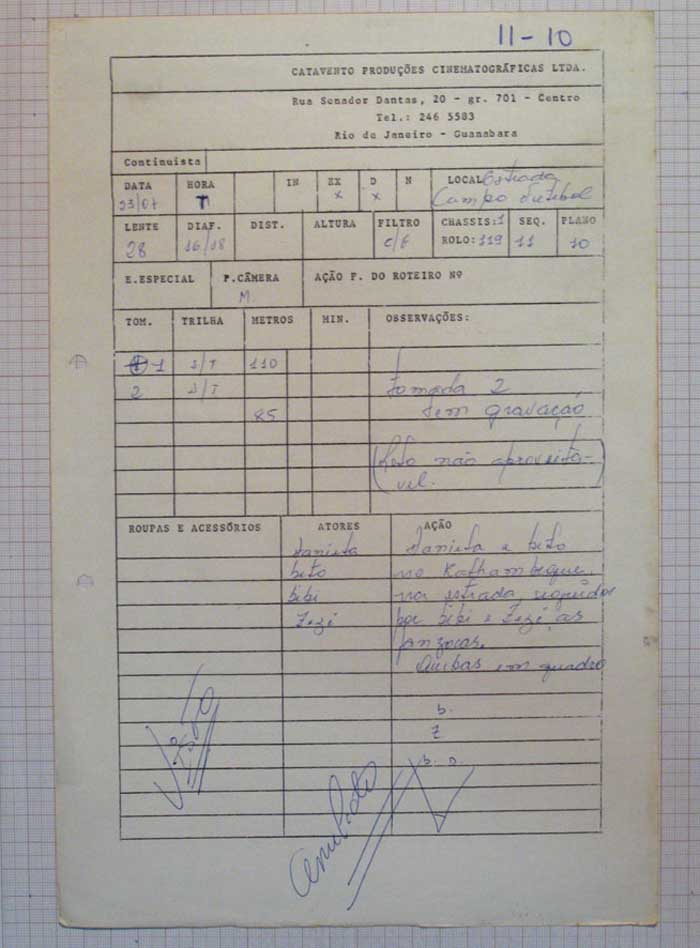 11-10
CATAVENTO PRODUÇÕES CINEMATOGRÁFICAS LTDA.
Rua Senador Dantas, 20 - gr. 701 - Centro
Tel.: 246 5583
Rio de Janeiro - Guanabara
Continuista
DATA HORA IN EX D N LOCAL Estrada
23/07 T x x Campo Futebol
LENTE DIAF. DIST. ALTURA FILTRO CHASSIS:1 SEQ. PLANO
28 16/18 C/F ROLO:119 11 10
E.ESPECIAL P.CÂMERA AÇÃO P. DO ROTEIRO Nº
M.
TOM. TRILHA METROS MIN. OBSERVAÇÕES:
1 S/T 110
2 S/T Tomada 2
85 tem gravação
(Foto não aproveitá-
vel.)
ROUPAS E ACESSÓRIOS ATORES AÇÃO
beto
bibi na estrada, seguidos
Zezé por bibi e Zezé, as
em quadro
b.
Z
b. D.
Visto